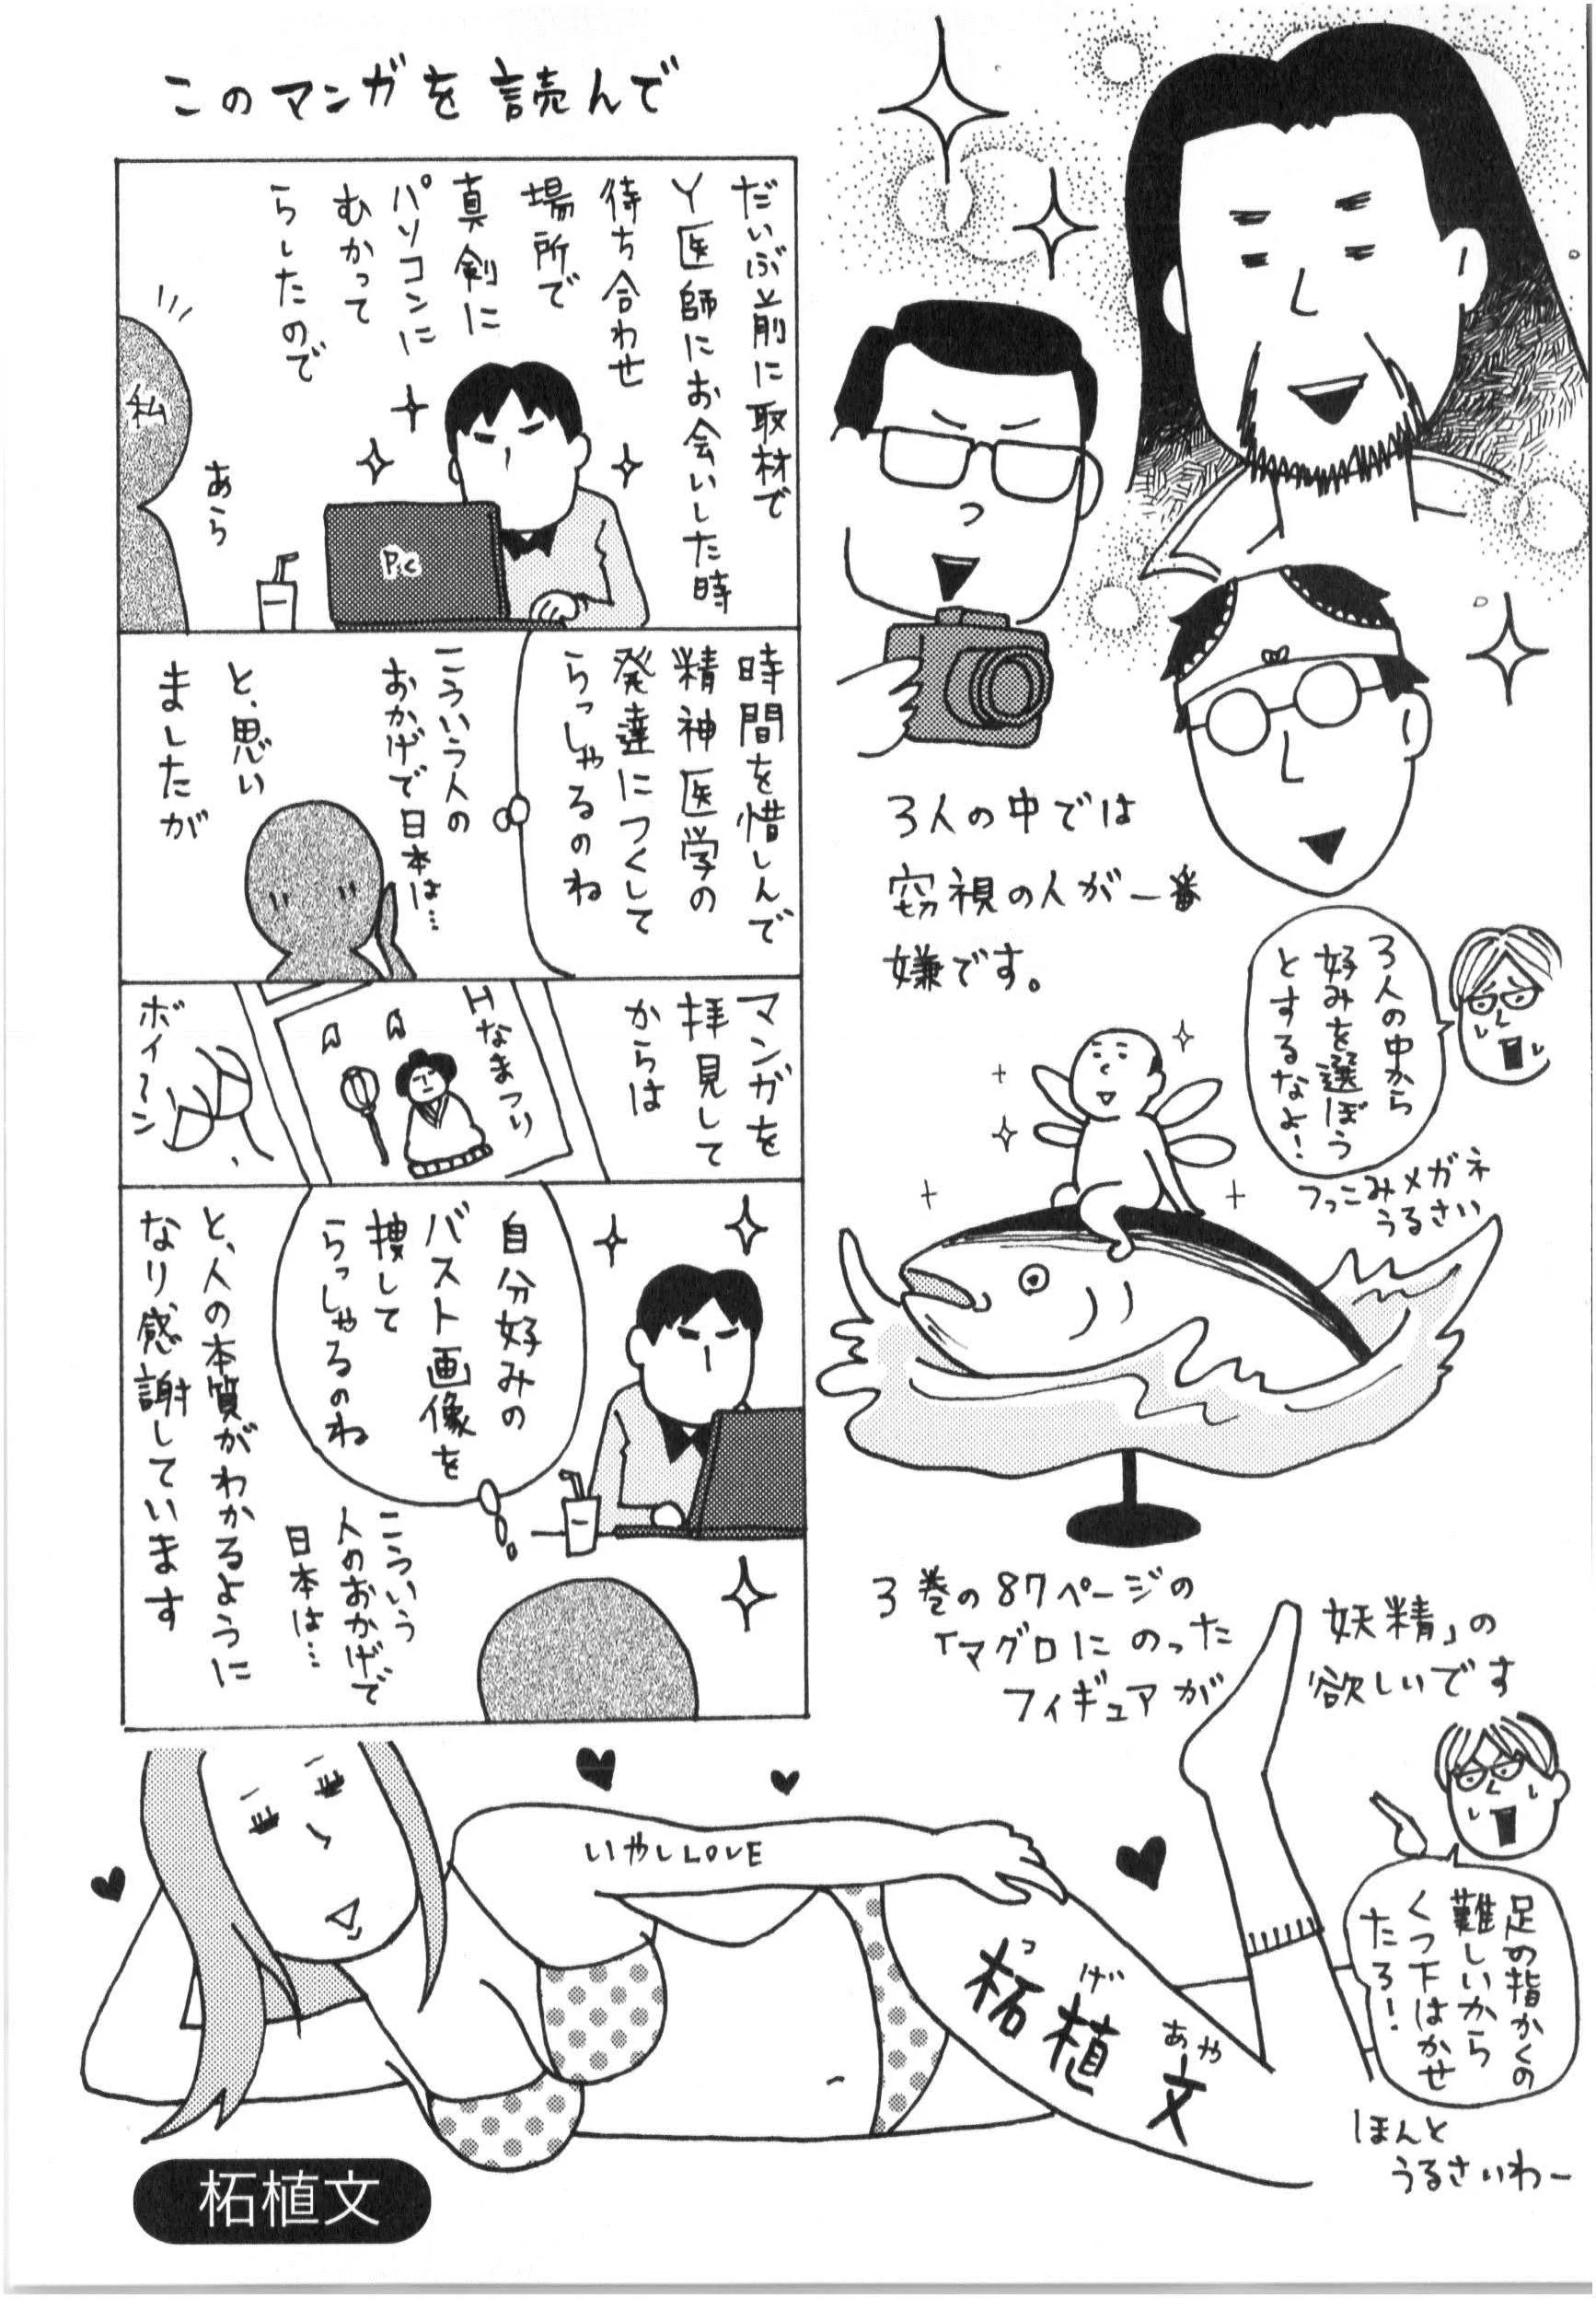 このマンガを読んで
だいぶ前に取材で
Y医師にお会いした時
待ち合わせ
場所で
真剣に
パソコンに
むかって
らしたので
私
あら
P.C
時間を惜しんで
精神医学の
発達につくして
らっしゃるのね
こういう人の
おかげで日本は…
と、思い
ましたが
マンガを
拝見して
からは
Hなまつり
ボイ〜ン
自分好みの
バスト画像を
捜して
らっしゃるのね
こういう
人のおかげで
日本は…
と、人の本質がわかるように
なり、感謝しています
3人の中では
窃視の人が一番
嫌です。
3人の中から
好みを選ぼう
とするなよ!
つっこみメガネ
うるさい
3巻の87ページの
「マグロにのった
妖精」の
フィギュアが
欲しいです
いやしLOVE
つげ
あや
柘植文
足の指かくの
難しいから
くつ下はかせ
たろ!
ほんと
うるさいわー
柘植文